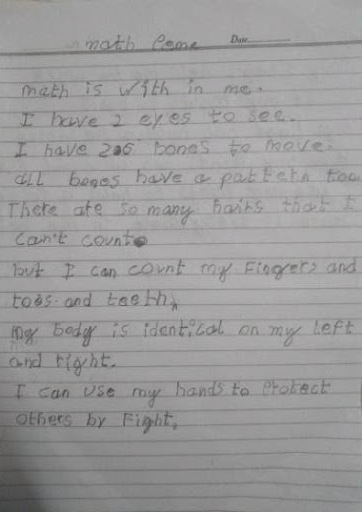 math Peme
Date
math is with in me.
I have 2 eyes to see.
I have 206 bones to move.
all bones have a pattern too
There are so many hairs that I
can't count
but I can count my Fingers and
toes and teeth,
my body is identical on my left
and right.
I can use my hands to Protect
others by Fight,